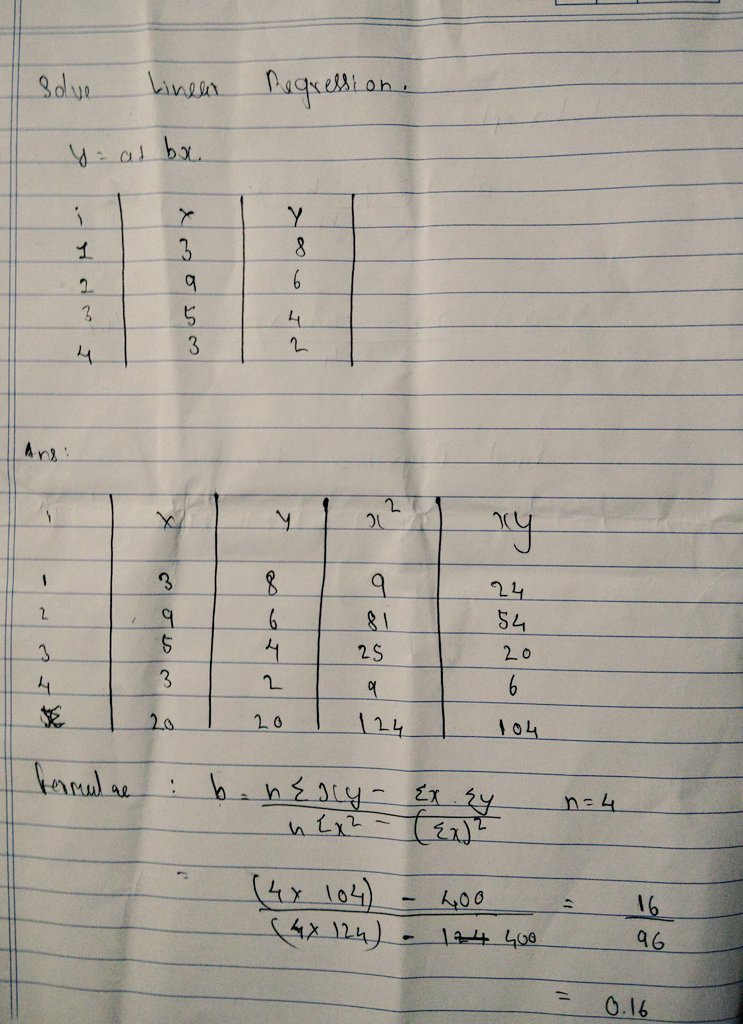 Solve Linear Regression.
y = a+ bx.
i x y
1 3 8
2 9 6
3 5 4
4 3 2
Ans:
i x y x² xy
1 3 8 9 24
2 9 6 81 54
3 5 4 25 20
4 3 2 9 6
Σ 20 20 124 104
Formulae : b = n Σxy - Σx . Σy n=4
n Σx² - (Σx)²
= (4x 104) - 400 = 16
(4x 124) - 400 96
= 0.16